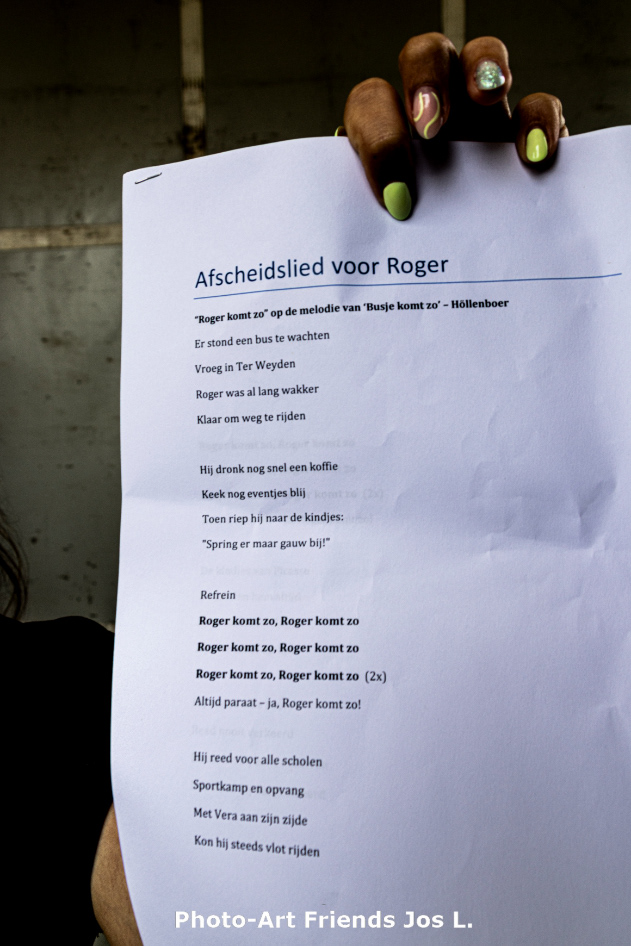 Afscheidslied voor Roger
"Roger komt zo" op de melodie van 'Busje komt zo' – Höllenboer
Er stond een bus te wachten
Vroeg in Ter Weyden
Roger was al lang wakker
Klaar om weg te rijden
Hij dronk nog snel een koffie
Keek nog eventjes blij
Toen riep hij naar de kindjes:
"Spring er maar gauw bij!"
Refrein
Roger komt zo, Roger komt zo
Roger komt zo, Roger komt zo
Roger komt zo, Roger komt zo (2x)
Altijd paraat – ja, Roger komt zo!
Hij reed voor alle scholen
Sportkamp en opvang
Met Vera aan zijn zijde
Kon hij steeds vlot rijden
Photo-Art Friends Jos L.